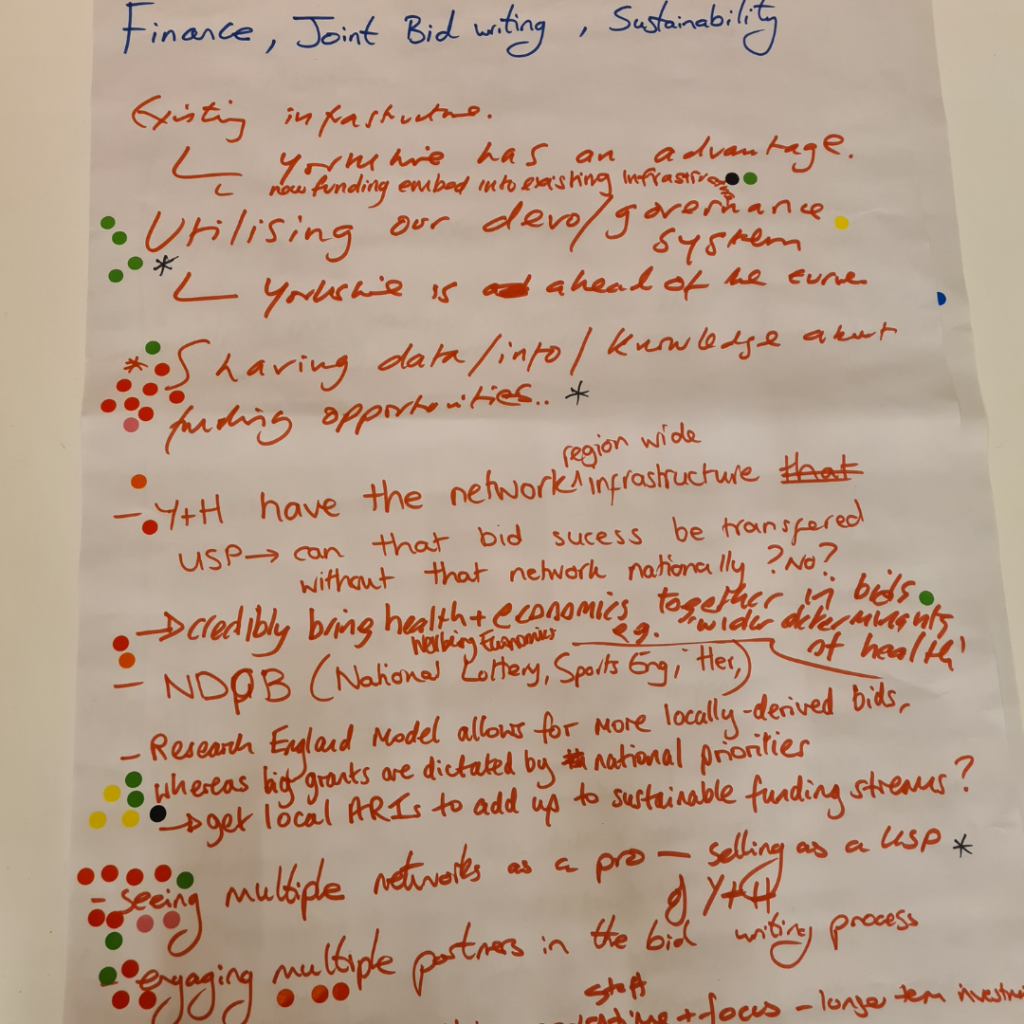 Finance, Joint Bid writing, Sustainability
Existing infrastructure.
Yorkshire has an advantage.
new funding embed into existing infrastr
Utilising our devo/governance
system
*
Yorkshire is ahead of the curve
* Sharing data/info/knowledge about
funding opportunities.. *
region wide
- Y+H have the network ^ infrastructure that
USP → can that bid sucess be transfered
without that network nationally ? No?
→ credibly bring health + economics together in bids
e.g. "wider determinants
of health'
Wellbeing Economics
- NDPB (National Lottery, Sports Eng, Her,)
- Research England Model allows for more locally-derived bids,
whereas big grants are dictated by national priorities
→ get local ARIs to add up to sustainable funding streams?
- seeing multiple networks as a pro - selling as a USP *
of Y+H
- engaging multiple partners in the bid writing process
staff
time + focus - longer term